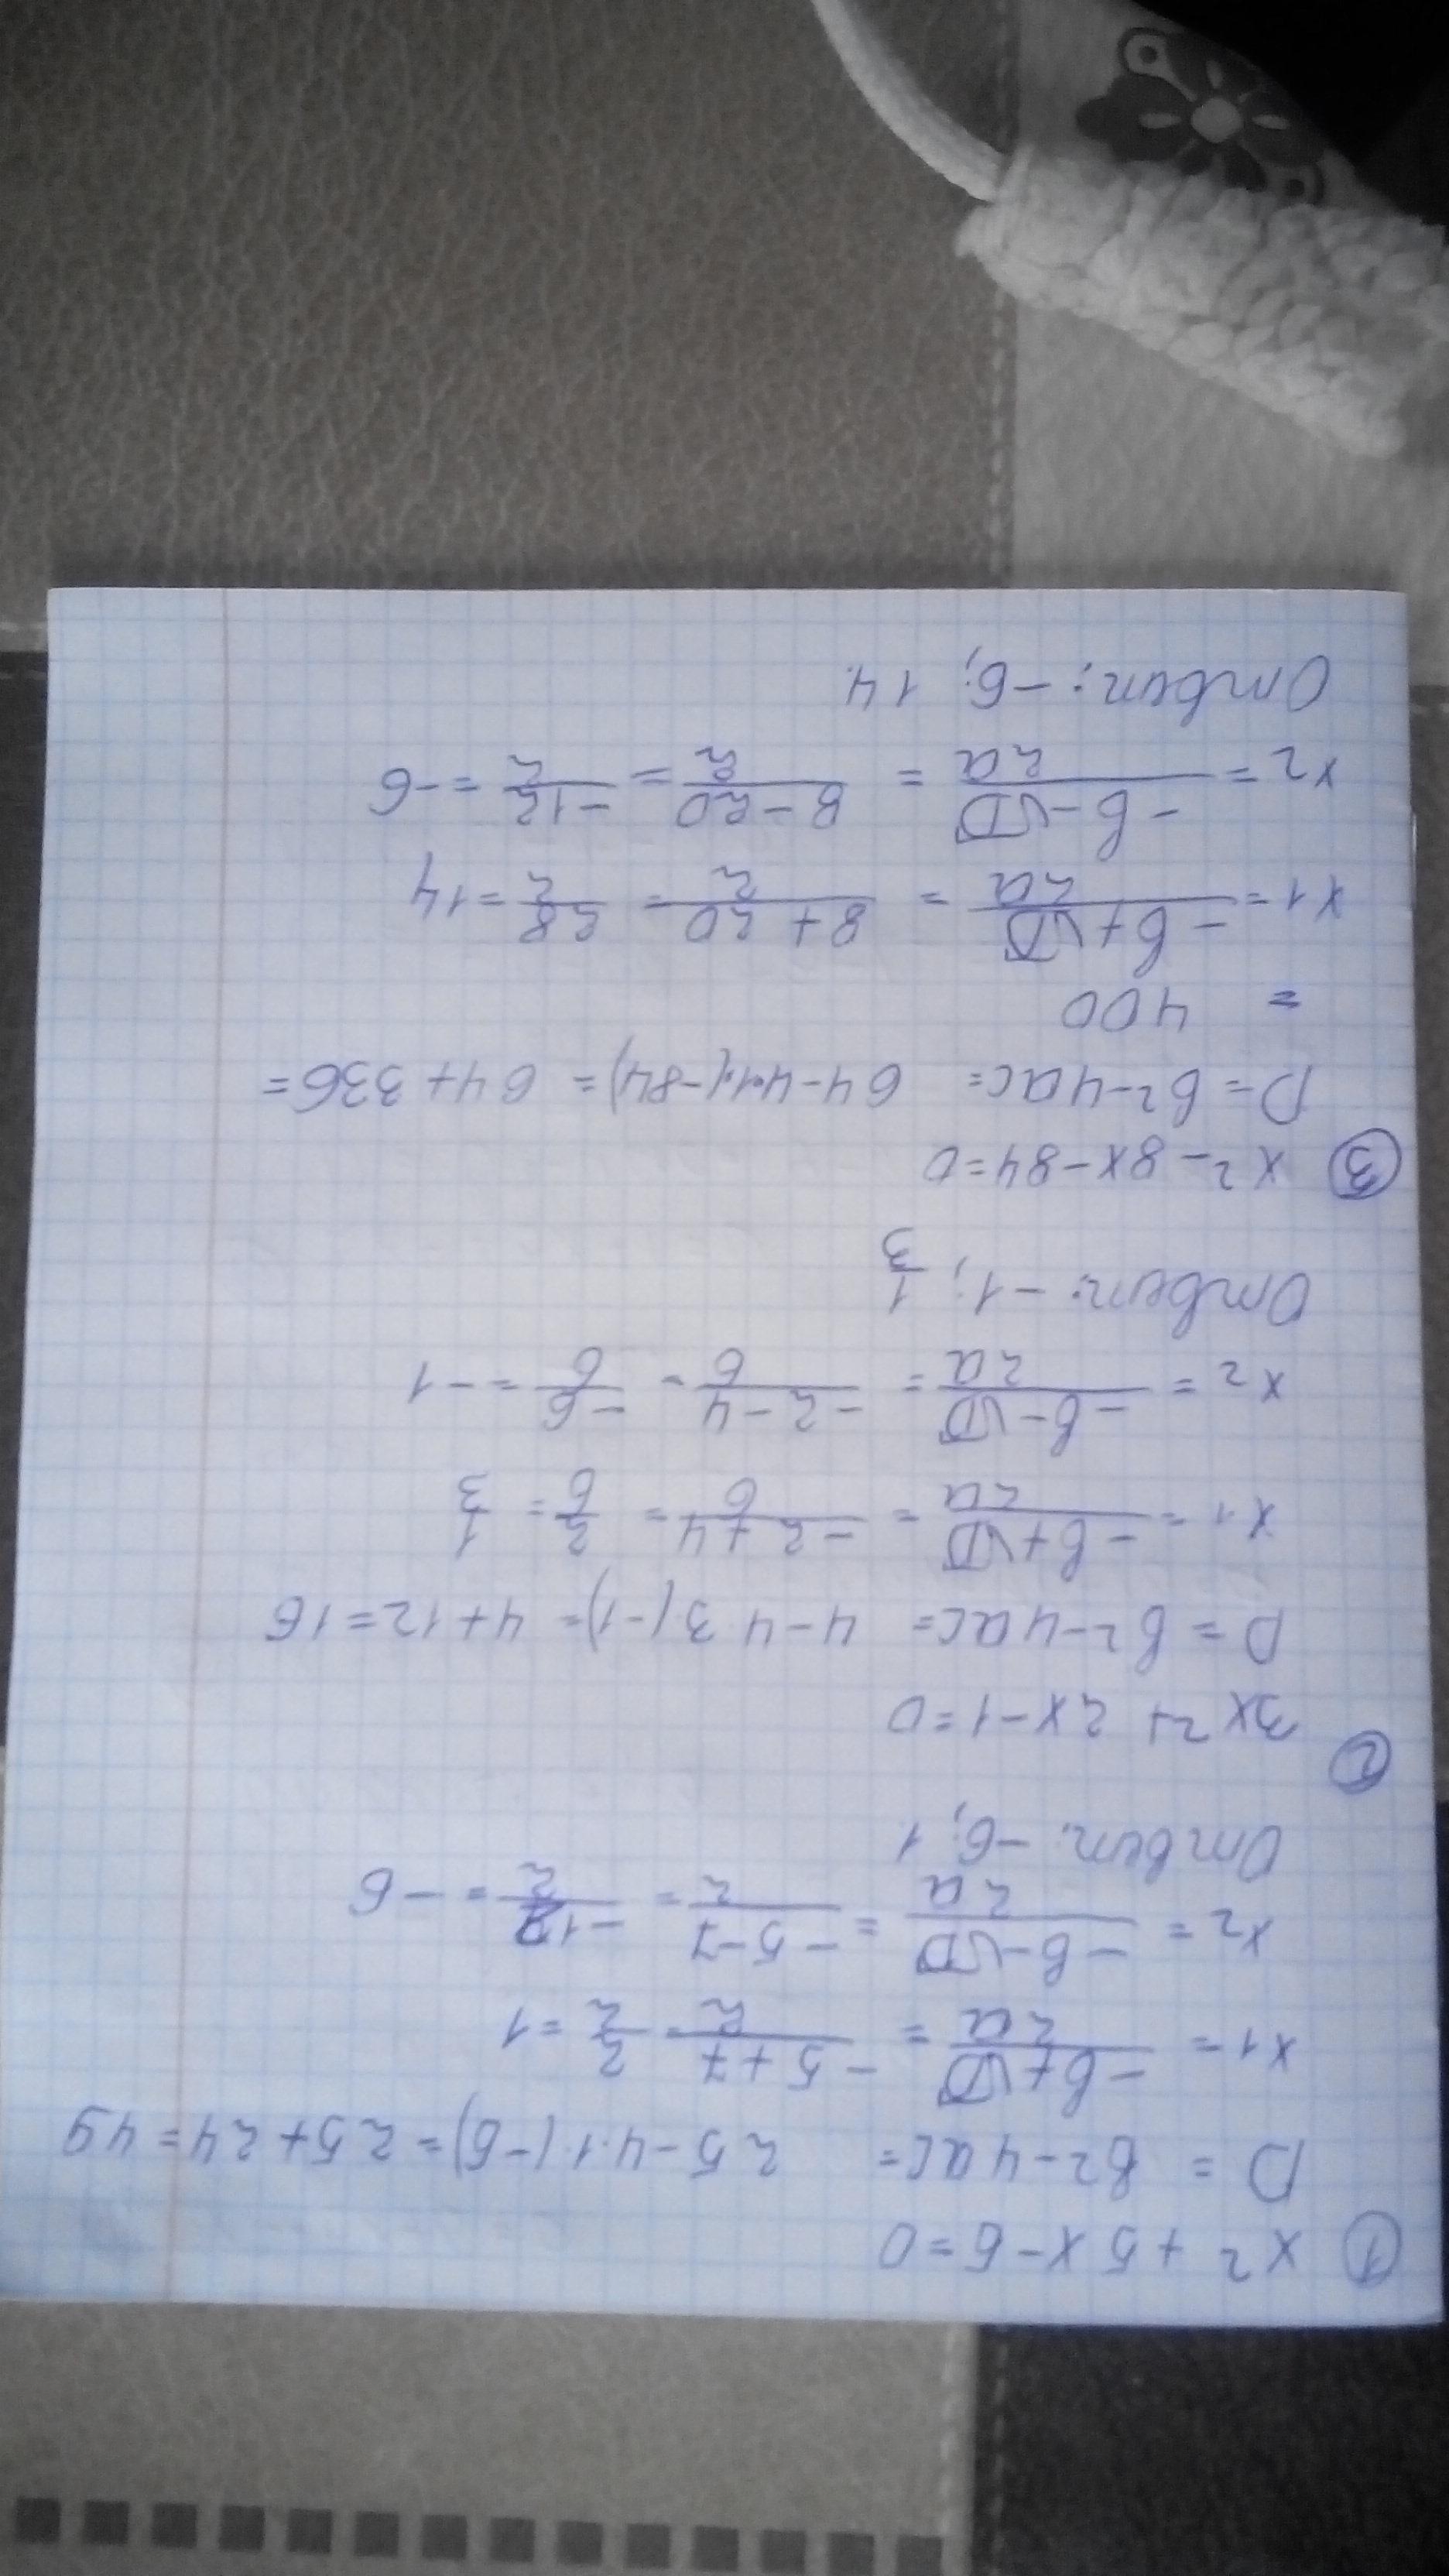 ① x2 + 5x - 6 = 0
D = b2 - 4ac = 25 - 4·1·(-6) = 25 + 24 = 49
x1 = (-b + √D)/2a = (-5 + 7)/2 = 2/2 = 1
x2 = (-b - √D)/2a = (-5 - 7)/2 = -12/2 = -6
Ответ. -6; 1
② 3x2 + 2x - 1 = 0
D = b2 - 4ac = 4 - 4·3(-1) = 4 + 12 = 16
x1 = (-b + √D)/2a = (-2 + 4)/6 = 2/6 = 1/3
x2 = (-b - √D)/2a = (-2 - 4)/6 - -6/6 = -1
Ответ: -1; 1/3
③ x2 - 8x - 84 = 0
D = b2 - 4ac = 64 - 4·1·(-84) = 64 + 336 =
= 400
x1 = (-b + √D)/2a = (8 + 20)/2 = 28/2 = 14
x2 = (-b - √D)/2a = (8 - 20)/2 = -12/2 = -6
Ответ: -6; 14.